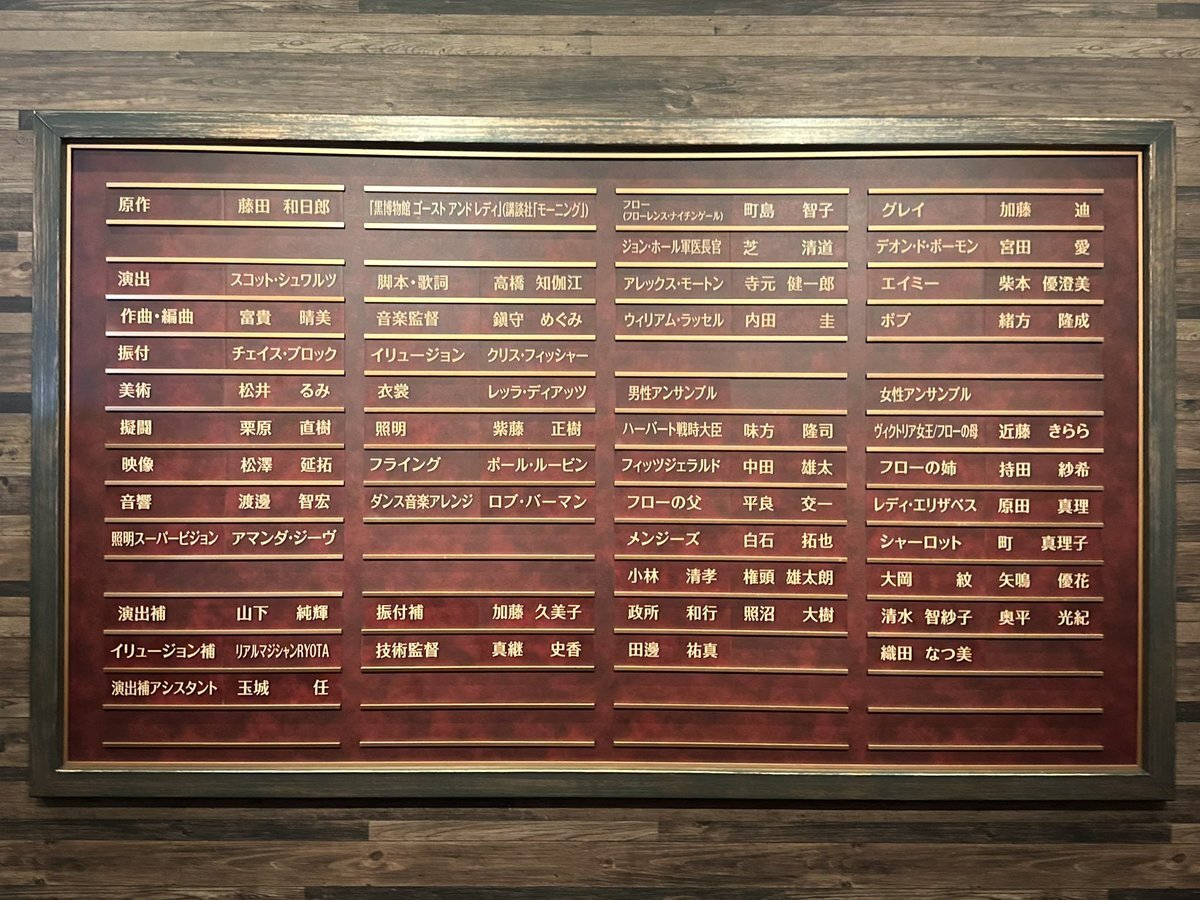 原作 藤田 和日郎
演出 スコット・シュワルツ
作曲・編曲 富貴 晴美
振付 チェイス・ブロック
美術 松井 るみ
擬闘 栗原 直樹
映像 松澤 延拓
音響 渡邊 智宏
照明スーパービジョン アマンダ・ジーヴ
演出補 山下 純輝
イリュージョン補 リアルマジシャンRYOTA
演出補アシスタント 玉城 任
「黒博物館 ゴースト アンド レディ」(講談社「モーニング」)
脚本・歌詞 高橋 知伽江
音楽監督 鎭守 めぐみ
イリュージョン クリス・フィッシャー
衣裳 レッラ・ディアッツ
照明 紫藤 正樹
フライング ポール・ルービン
ダンス音楽アレンジ ロブ・バーマン
振付補 加藤 久美子
技術監督 真継 史香
フロー
(フローレンス・ナイチンゲール) 町島 智子
ジョン・ホール軍医長官 芝 清道
アレックス・モートン 寺元 健一郎
ウィリアム・ラッセル 内田 圭
男性アンサンブル
ハーバート戦時大臣 味方 隆司
フィッツジェラルド 中田 雄太
フローの父 平良 交一
メンジーズ 白石 拓也
小林 清孝 権頭 雄太朗
政所 和行 照沼 大樹
田邊 祐真
グレイ 加藤 迪
デオン・ド・ボーモン 宮田 愛
エイミー 柴本 優澄美
ボブ 緒方 隆成
女性アンサンブル
ヴィクトリア女王/フローの母 近藤 きらら
フローの姉 持田 紗希
レディ・エリザベス 原田 真理
シャーロット 町 真理子
大岡 紋 矢鳴 優花
清水 智紗子 奥平 光紀
織田 なつ美